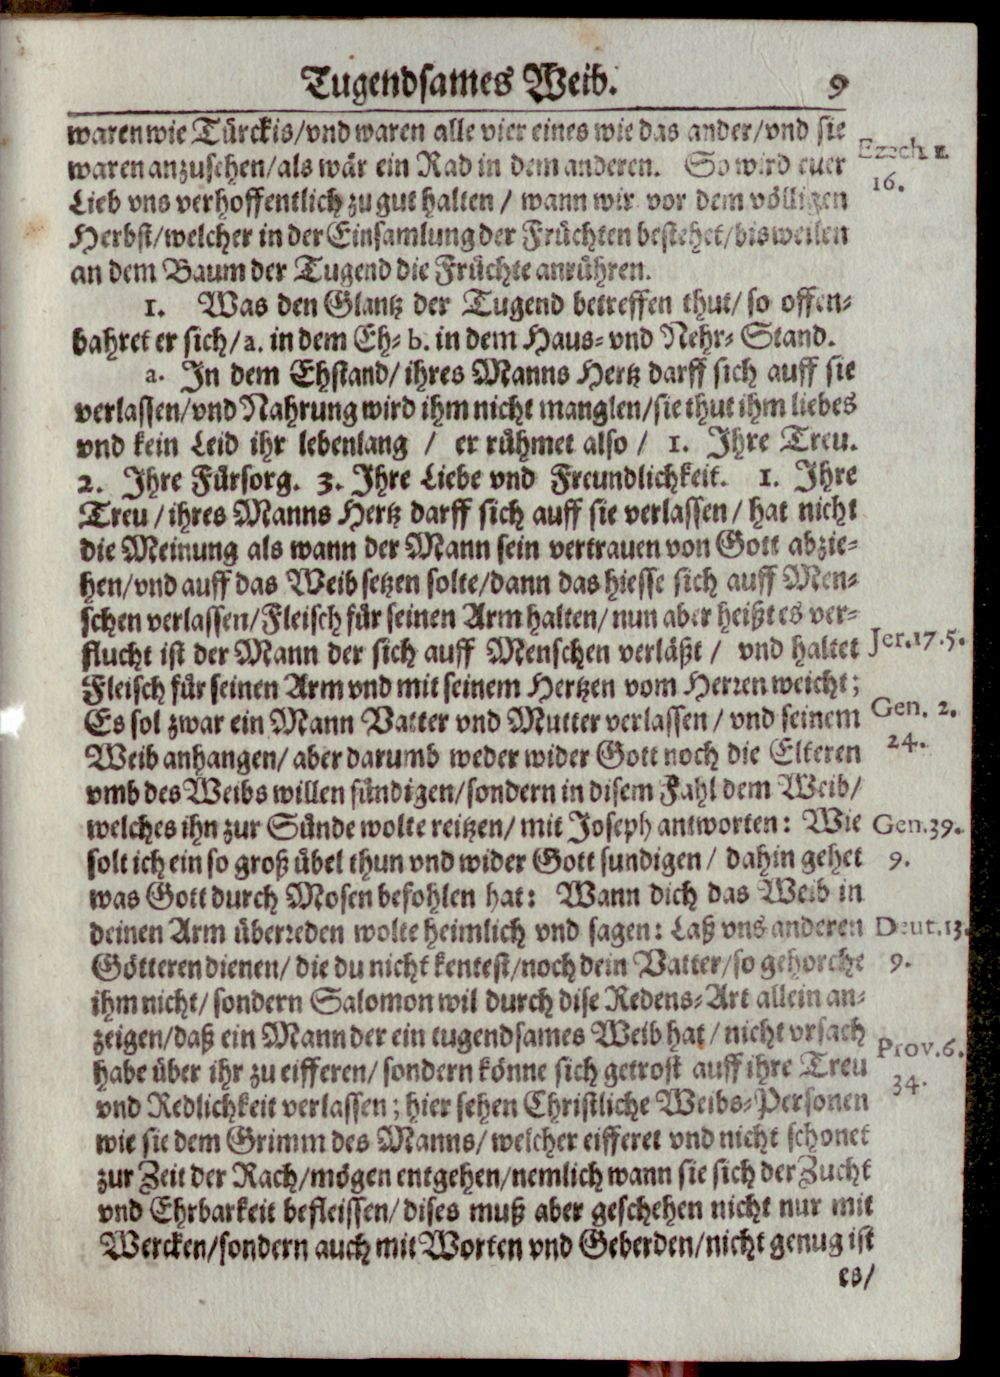 Tugendsames Weib. 9
waren wie Türckis/vnd waren alle vier eines wie das ander/vnd sie
waren anzusehen/als wär ein Rad in dem anderen. So wird euer
Ezech. 1.
16.
Lieb vns verhoffentlich zu gut halten / wann wir vor dem völligen
Herbst/welcher in der Einsamlung der Früchten bestehet/bisweilen
an dem Baum der Tugend die Früchte anrühren.
1. Was den Glantz der Tugend betreffen thut/ so offen-
bahret er sich/a. in dem Eh- b. in dem Haus- vnd Nehr- Stand.
a. In dem Ehstand/ihres Manns Hertz darff sich auff sie
verlassen/vnd Nahrung wird ihm nicht manglen/sie thut ihm liebes
vnd kein Leid ihr lebenlang / er rühmet also / 1. Ihre Treu.
2. Ihre Fürsorg. 3. Ihre Liebe vnd Freundlichkeit. 1. Ihre
Treu / ihres Manns Hertz darff sich auff sie verlassen / hat nicht
die Meinung als wann der Mann sein vertrauen von Gott abzie-
hen/vnd auff das Weib setzen solte/dann das hiesse sich auff Men-
schen verlassen/Fleisch für seinen Arm halten/nun aber heißt es ver-
flucht ist der Mann der sich auff Menschen verläßt / vnd haltet
Jer.17.5.
Fleisch für seinen Arm vnd mit seinem Hertzen vom Herren weicht;
Es sol zwar ein Mann Vatter vnd Mutter verlassen / vnd seinem
Gen. 2.
24.
Weib anhangen/ aber darumb weder wider Gott noch die Elteren
vmb des Weibs willen sündigen/sondern in disem Fahl dem Weib/
welches ihn zur Sünde wolte reitzen/ mit Joseph antworten: Wie
Gen.39.
9.
solt ich ein so groß übel thun vnd wider Gott sundigen / dahin gehet
was Gott durch Mosen befohlen hat: Wann dich das Weib in
deinen Arm überreden wolte heimlich vnd sagen: Laß vns anderen
Deut.13.
9.
Götteren dienen/ die du nicht kentest/noch dein Vatter/so gehorche
ihm nicht/ sondern Salomon wil durch dise Redens-Art allein an-
zeigen/daß ein Mann der ein tugendsames Weib hat / nicht vrsach
Prov.6.
34.
habe über ihr zu eifferen/ sondern könne sich getrost auff ihre Treu
vnd Redlichkeit verlassen; hier sehen Christliche Weibs-Personen
wie sie dem Grimm des Manns/ welcher eifferet vnd nicht schonet
zur Zeit der Rach/mögen entgehen/nemlich wann sie sich der Zucht
vnd Ehrbarkeit befleissen/ dises muß aber geschehen nicht nur mit
Wercken/sondern auch mit Worten vnd Geberden/nicht genug ist
es/